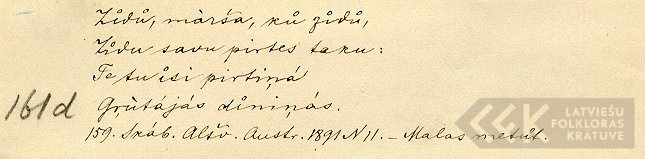 Zůdů, màrša, ků zůdů,
Zůdu savu pirtes taku:
Te tu îsi pirtiņâ
Gŗùtájás důniņás.
161d
159. Skáb. Altšv. Austr. 1891 N 11. – Malas metůt.
LATVIEŠU
FOLKLORAS
KRĀTUVE